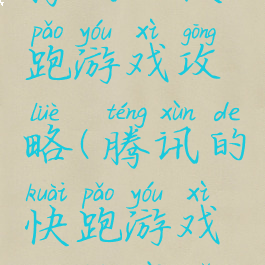 pǎo yóu xì gōng
跑游戏攻
lüè téng xùn de
略(腾讯的
kuài pǎo yóu xì
快跑游戏